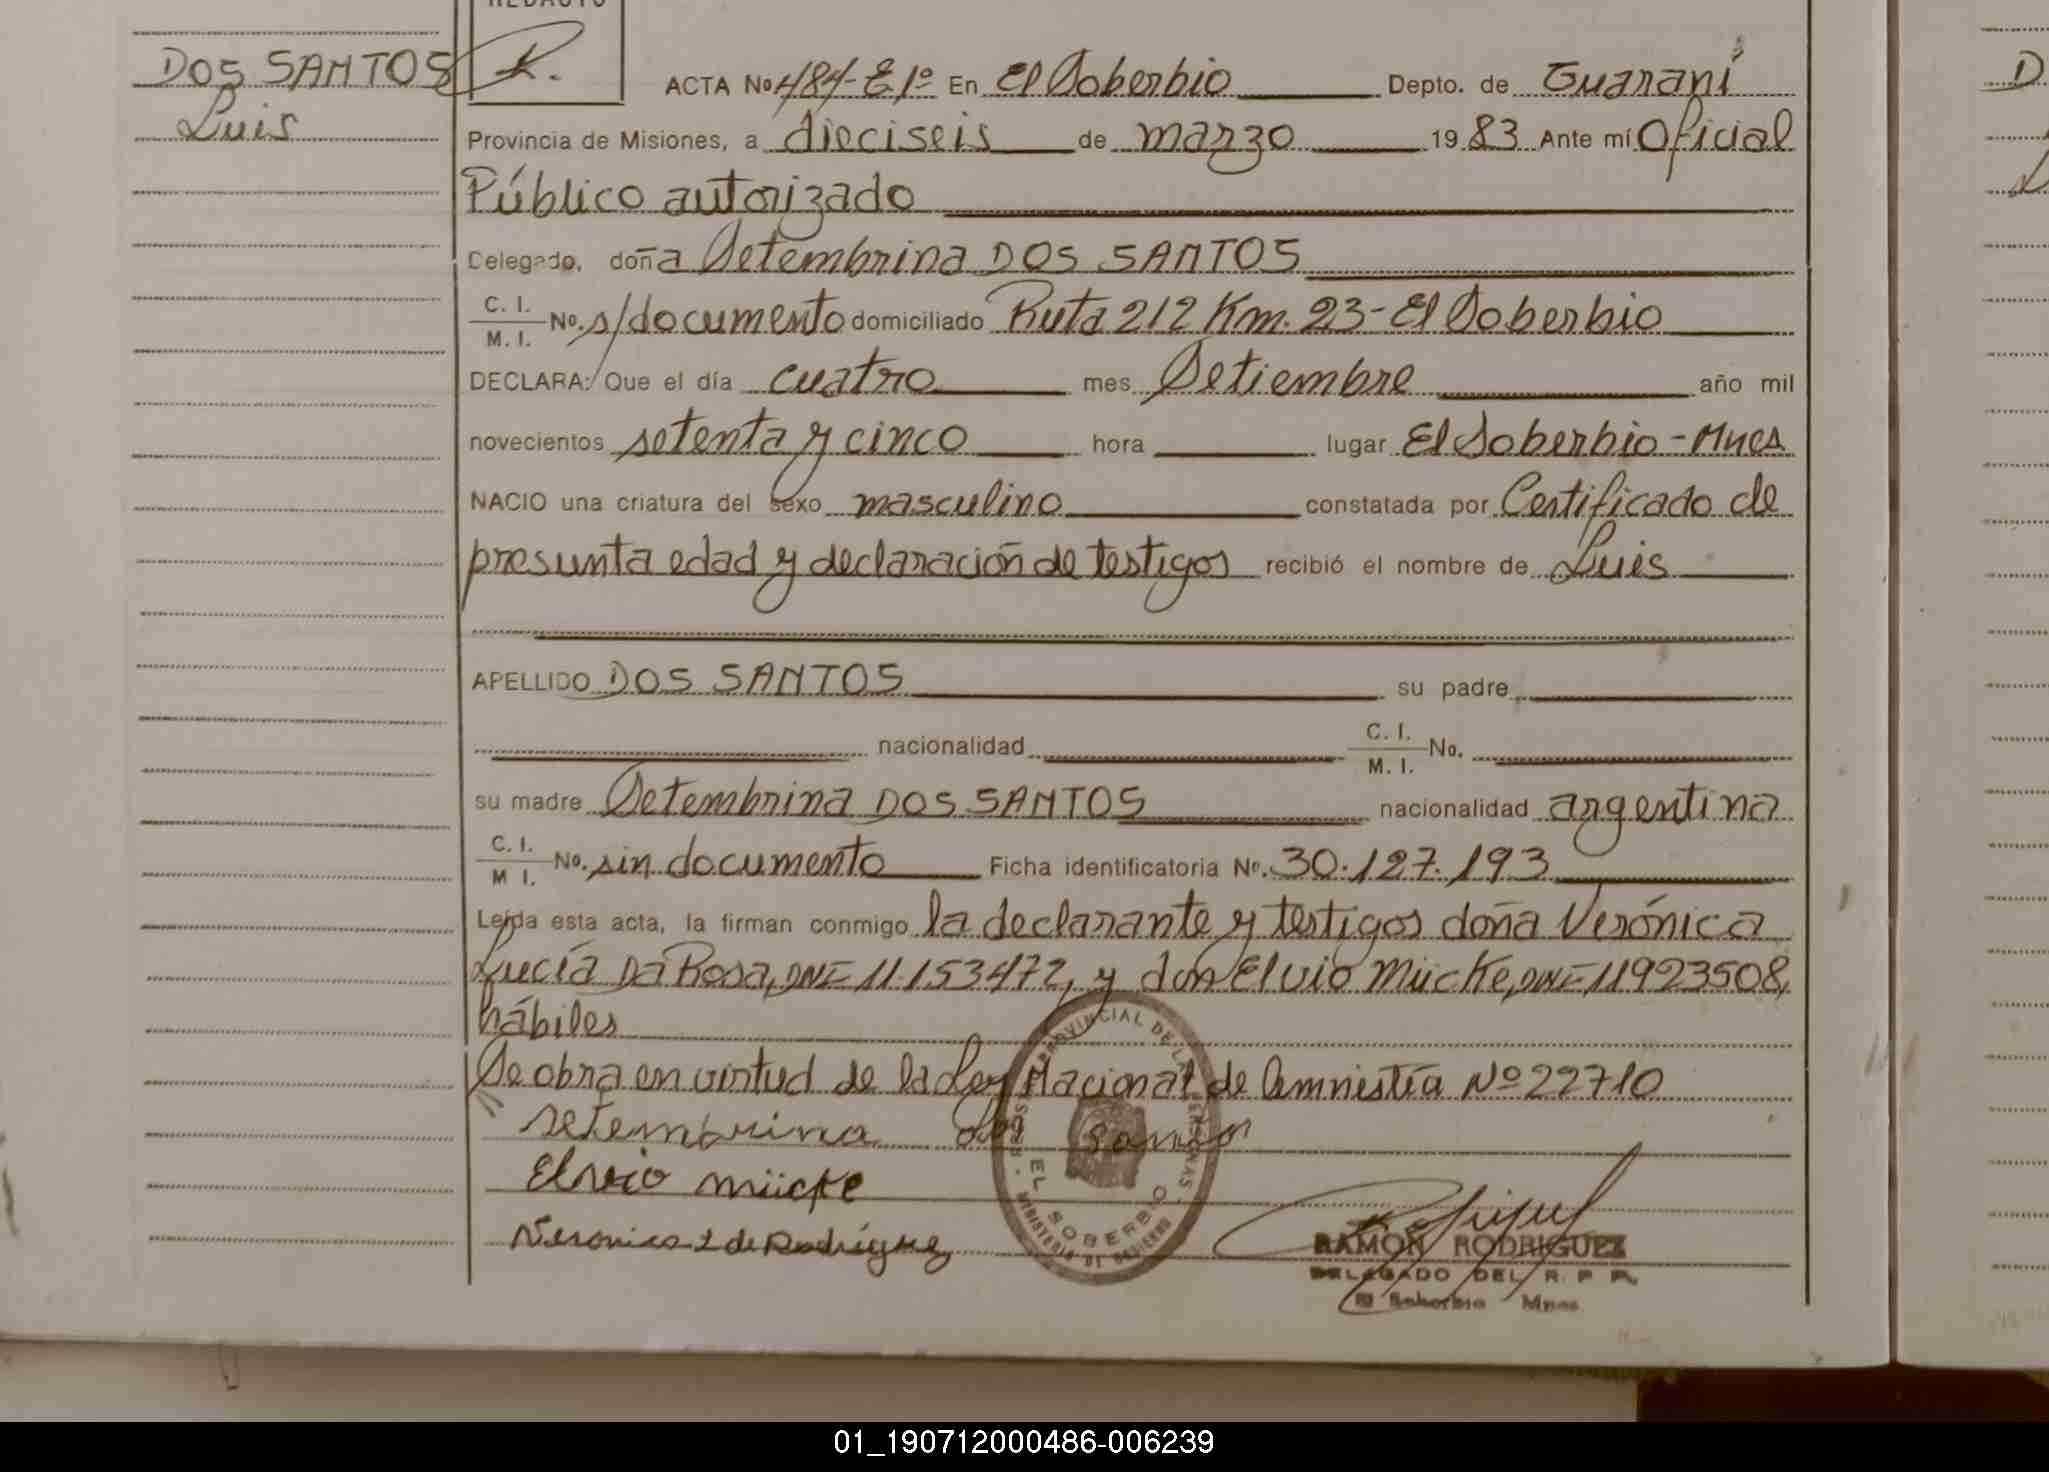 REDACTO
DOS SANTOS
Luis
R.
ACTA No 484-E 1º En El Soberbio Depto. de Guaraní
Provincia de Misiones, a dieciseis de marzo 1983 Ante mí Oficial
Público autorizado
Delegado, doña Setembrina DOS SANTOS
C. I.
M. I. No. s/documento domiciliado Ruta 212 Km. 23-El Soberbio
DECLARA: Que el día cuatro mes Setiembre año mil
novecientos setenta y cinco hora lugar El Soberbio-Mnes
NACIO una criatura del sexo masculino constatada por Certificado de
presunta edad y declaración de testigos recibió el nombre de Luis
APELLIDO DOS SANTOS su padre
nacionalidad C. I.
M. I. No.
su madre Setembrina DOS SANTOS nacionalidad argentina
C. I.
M I. No. sin documento Ficha identificatoria Nº. 30.127.193
Leída esta acta, la firman conmigo la declarante y testigos doña Verónica
Lucía Da Rosa, DNI-11.153472, y don Elvio Mücke, DNI-11923508,
hábiles
Se obra en virtud de la Ley Nacional de Amnistía Nº 22710
setembrina dos santos
Elvio mücke
Veronica L de Rodríguez
PROVINCIAL DE LAS PERSONAS
EL SOBERBIO
MINISTERIO DE GOBIERNO
RAMON RODRIGUEZ
DELEGADO DEL R. P. P.
El Soberbio Mnes
D
L
01_190712000486-006239